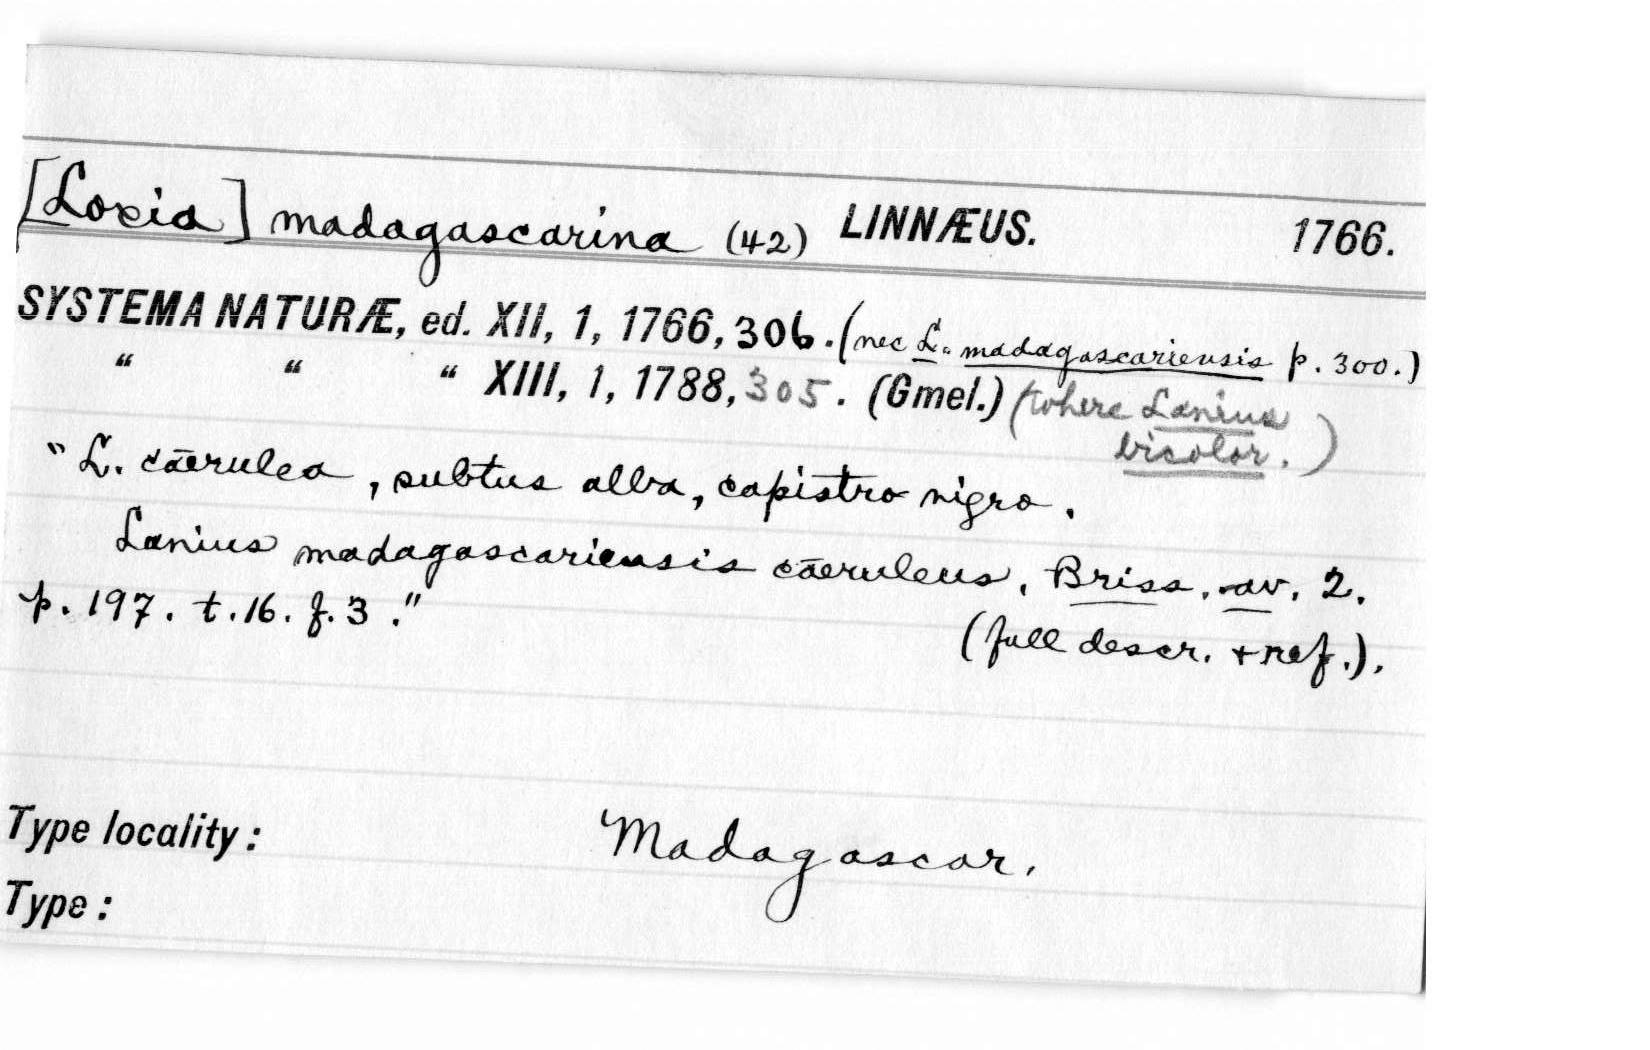 [Loxia] madagascarina (42) LINNÆUS. 1766.
SYSTEMA NATURÆ, ed. XII, 1, 1766, 306. (nec L. madagascariensis p. 300.)
“ “ “ XIII, 1, 1788, 305. (Gmel.) (where Lanius
bicolor.)
"L. cāerulea, subtus alba, capistro nigro.
Lanius madagascariensis cāeruleus, Briss. av. 2.
p. 197. t. 16. f. 3."
(full descr. + ref.).
Type locality: Madagascar.
Type: